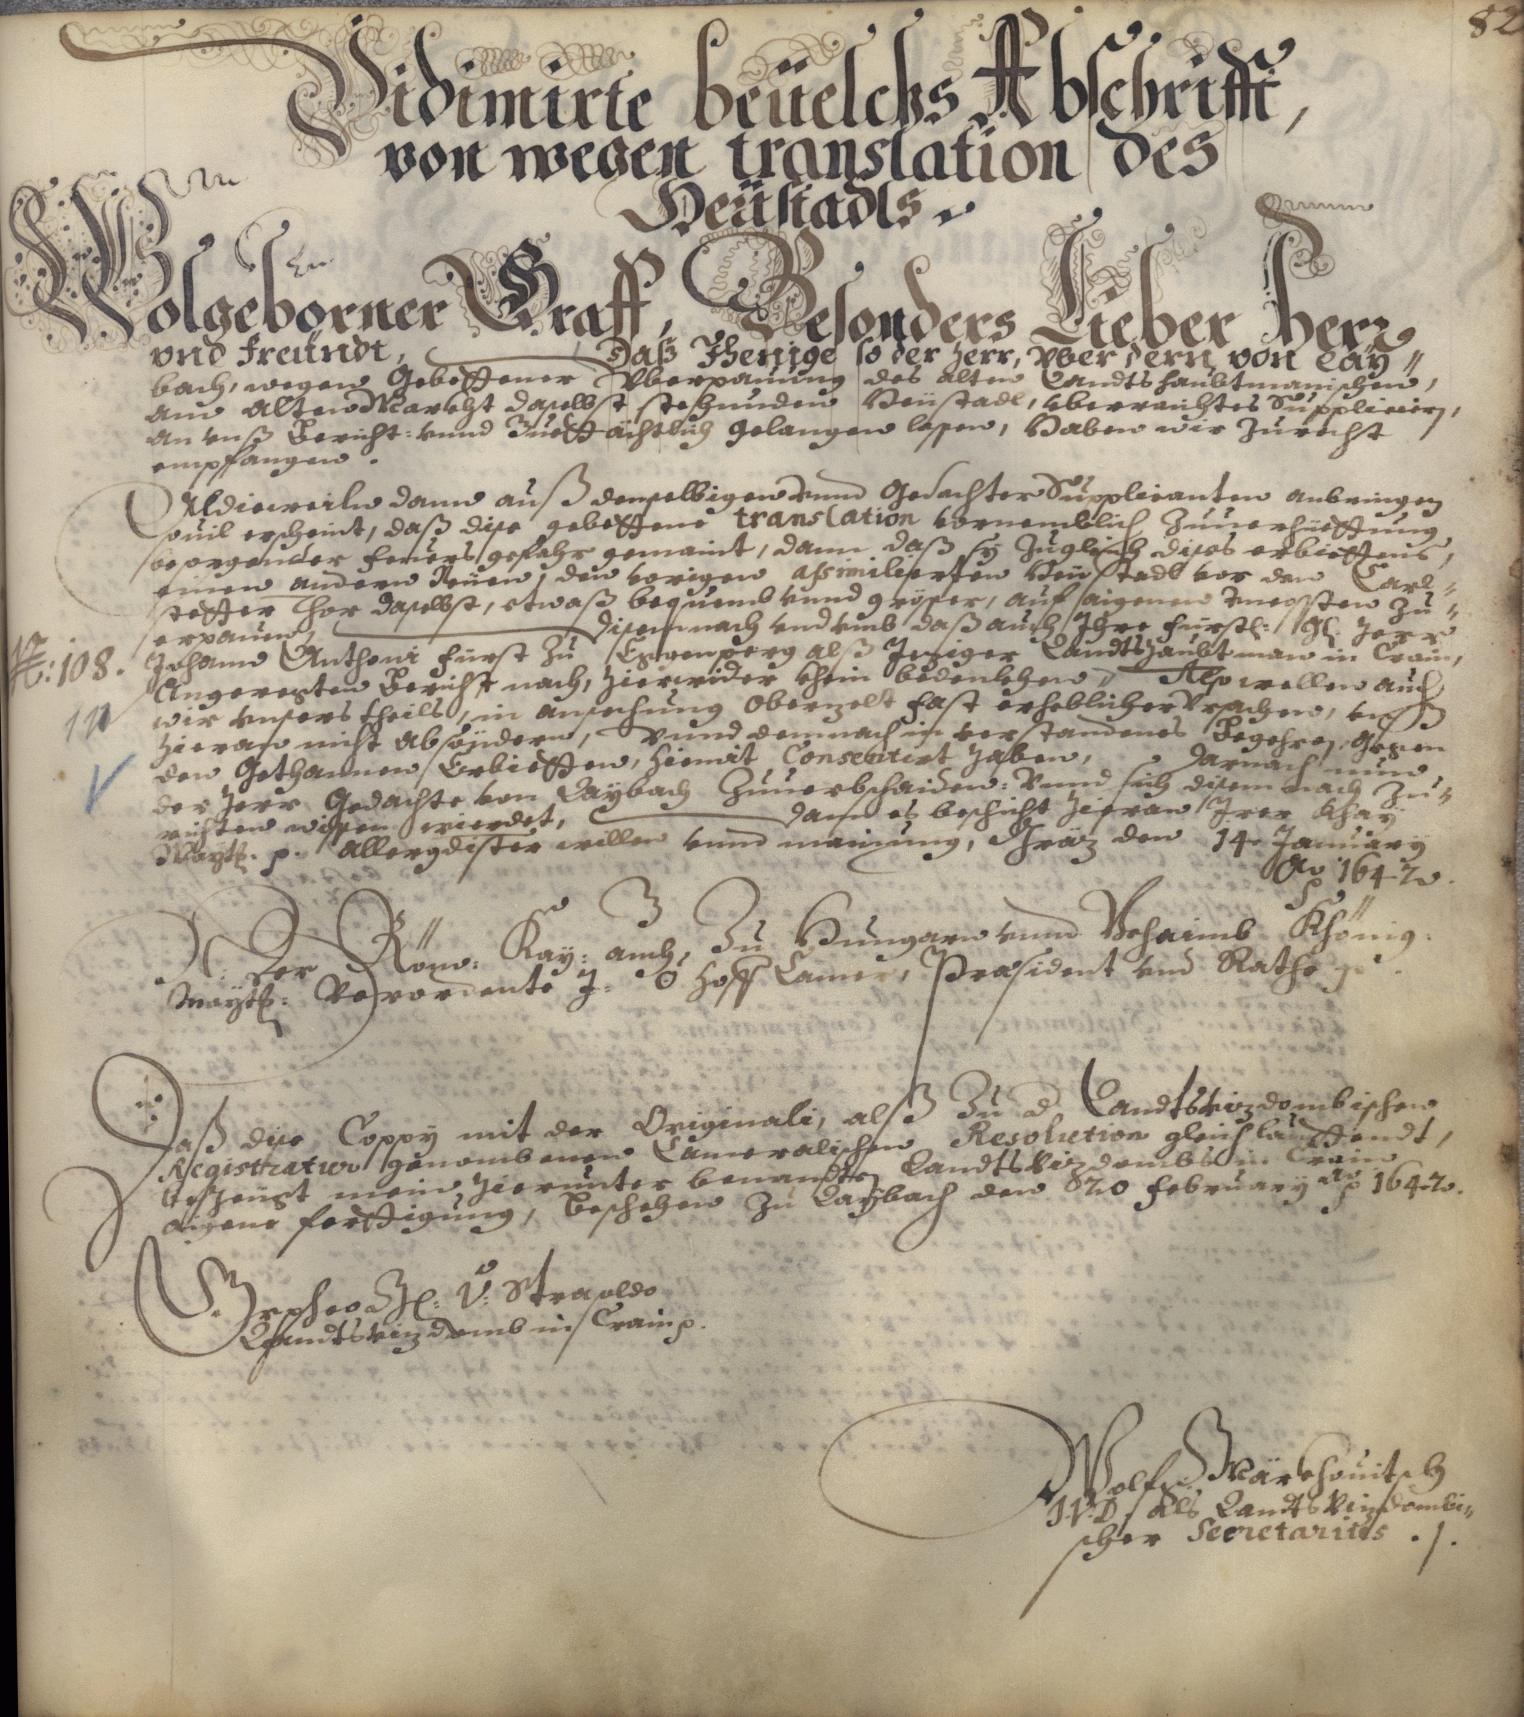 82
Vidimirte beüelchs Abschrifft,
von wegen translation des
Heüstadls.
Wolgeborner Graff, Besonders Lieber Herr
vnd Freündt, Daß Jhenige so der Herr, vber dern von Laÿ=
bach, wegen Gebettener Vberpauung des alten Landtshaubtmanischen,
am Alten Marckht daselbst stehunden Heüstadl, vberraichtes Supplicirn,
an vnß Bericht: vnnd guettächtlich gelangen lassen, Haben wir zurecht
empfangen.
Aldieweiln dann auß denselbigen vnnd Gedachter Supplicanten anbringen
souil erscheint, daß dise gebettene translation vornemblich zuuerhüettung
besorgender feuersgefahr gemaint, dann daß sÿ zugleich dises erbiettens,
einen andern Neüen, den vorigen assimilierten Heüstadl vor den Carl=
stetter Thor daselbst, etwaß bequemb vnnd grösser, auf aigenen Uncosten zu=
erpauen, disemnach vnd vmb daß auch Ihre fürstl: Gl: Herr
№: 108. Johann Anthoni Fürst zu Eggenperg alß Jeziger Landtshaubtman in Crain,
Angeregten Bericht nach, hierwider khein bedenckhen, Also wellen auch
wir vnsers theils, in ansechung oberzelt fast erheblicher Vrsachen, vnß
hieran nicht absöndern, vnnd demnach in verstandenes Begehren, gegen
den Gethannen Erbietten, hiemit Consentirt haben, Darnach nun
der Herr Gedachte von Laÿbach zuuerbschaiden: Vnnd sich disem nach zu=
richten wissen wierdet, dann es beschicht hieran Irer Khaÿ
Maytt: p. allergdister willen vnnd mainung, Gräz den 14 January
Ao 1642.
N: Der Röm: Kaÿ: auch, zu Hungarn vnnd Behaimb Khönig:
Maÿtt: Verordente I: Ö Hoff Camer, Præsident vnd Räthe p.
Daß dise Coppÿ mit der Originali, alß zu d Landtsvizdombischen
Registratur genombenen Cameralischen Resolution gleichlauttendt,
bezeügt mein hierunter benandten Landtsvizdombs in Crain
aigene ferttigung, Beschehen zu Laÿbach den 20 february Ao 1642.
Orpheo Gl: v: Strasoldo
Landtsvizdomb in Crain p.
Wolf Märkhouitsch
I.V.D. als Landtsvizdombi=
scher Secretarius ./.